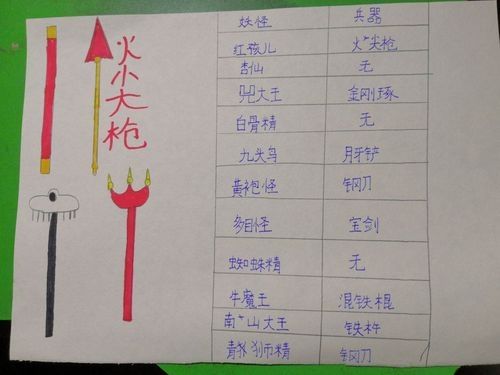 火尖枪
妖怪 兵器
红孩儿 火尖枪
杏仙 无
兕大王 金刚琢
白骨精 无
九头鸟 月牙铲
黄袍怪 钢刀
多目怪 宝剑
蜘蛛精 无
牛魔王 混铁棍
南山大王 铁杵
狮精 钢刀